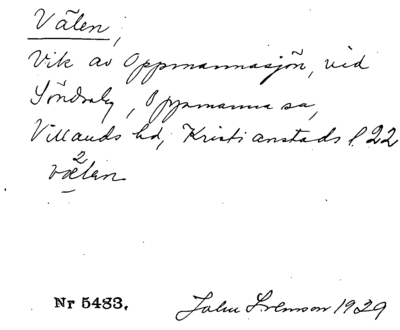 Vålen,
Vik av Oppmannasjön, vid
Söndraby, Oppmanna sn,
Villands hd, Kristianstads l. 22
vœ²len
Nr 5483. John Svensson 1929